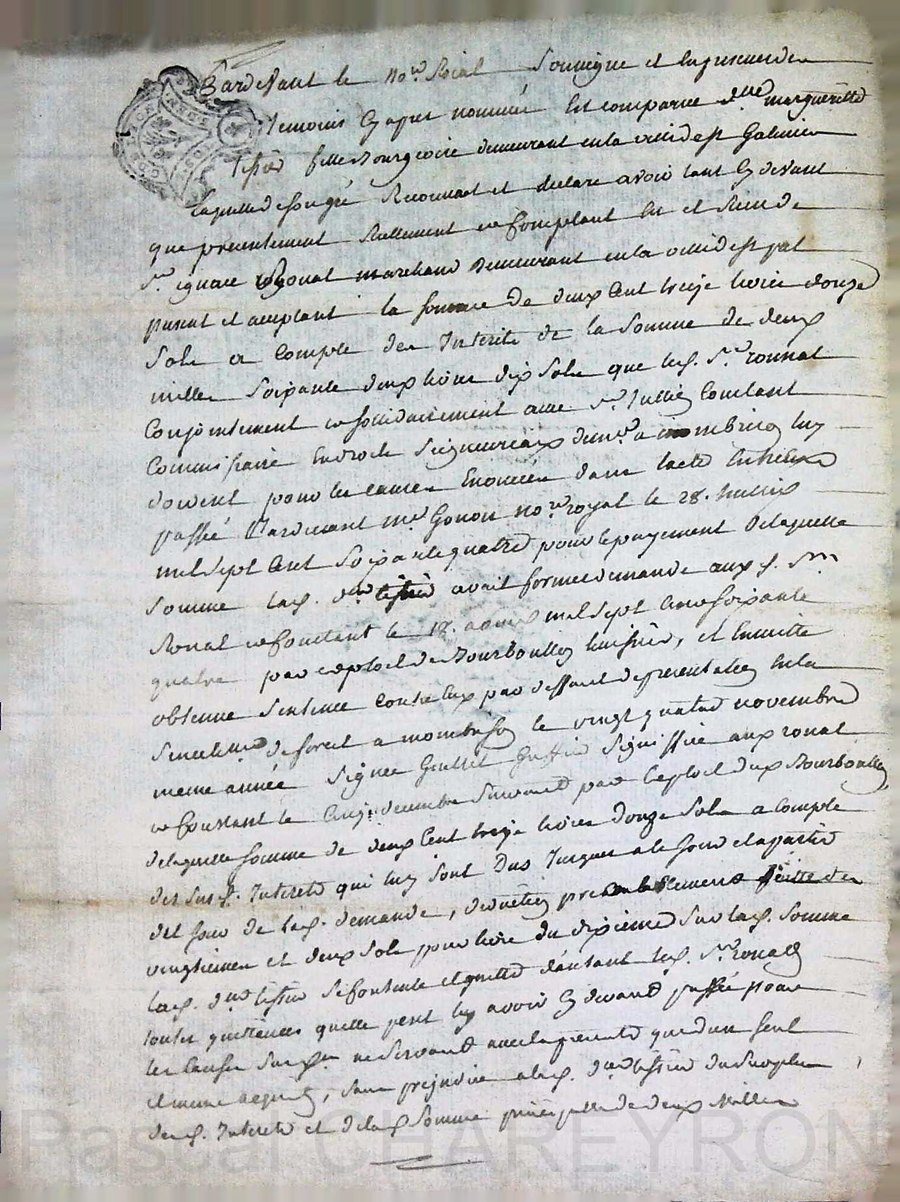 Pardevant le no.re Roial Soussigné et en presence des
temoins cy apres nommés Est comparue d.lle margueritte
tissier fille Bourgeoise demeurant en la ville de st Galmier
laquelle de son gré Reconnait et declare avoir tant cy devant
que presentement Reellement comptant eu et Receu de
S.r ignace Ronat marchand demeurant en la ville de st gal
present et acceptant la somme de deux Cent treize livres douze
Sols a Compte des Interets de la Somme de deux
milles Soixante deux livres dix Sols que led. S.r ronnat
Conjointement et solidairement avec S.r Jullien Constant
Commissaire en droits Seigneuriaux dem.t a montbrison luy
doivent pour les causes Enoncées dans l'acte entr'eux
passée Pardevant m.e Gonon no.re royal le 28.
mil Sept Cent Soixante quatre pour le payement De laquelle
Somme lad. d.lle tissier avait formée demande aux d. S.rs
Ronat et Constant le 18. mil Sept Cent Soixante
quatre par exploit de Bourboullon huissier, et Ensuite
obtenue Sentence Contre Eux par deffaut de presentation En la
Senechaussée de forest a montbrison le vingt quatre novembre
meme année Signée Greffier Signiffiée aux ronat
et Constant le Cinq decembre Suivant par Exploit dud. Bourboullon
de laquelle somme de deux Cent treize livres douze Sols a Compte
des Susd. Interets qui luy sont Dus Jusques a ce jour et a partir
du jour de lad. demande, deduction prealablement faitte des
vingtiemes et deux Sols pour livre du dixieme Sur lad. Somme
lad. d.lle tissier Se contente et quitte d'autant led. S.r ronat
touttes quittances quelle peut luy avoir cy devant passée pour
les causes Susd. ne Servant avec la presente que d'un Seul
et meme acquit, Sans prejudice a lad. d.lle tissier du Surplus
desd. Interets et de lad. Somme principalle de deux Milles
Pascal CHAREYRON